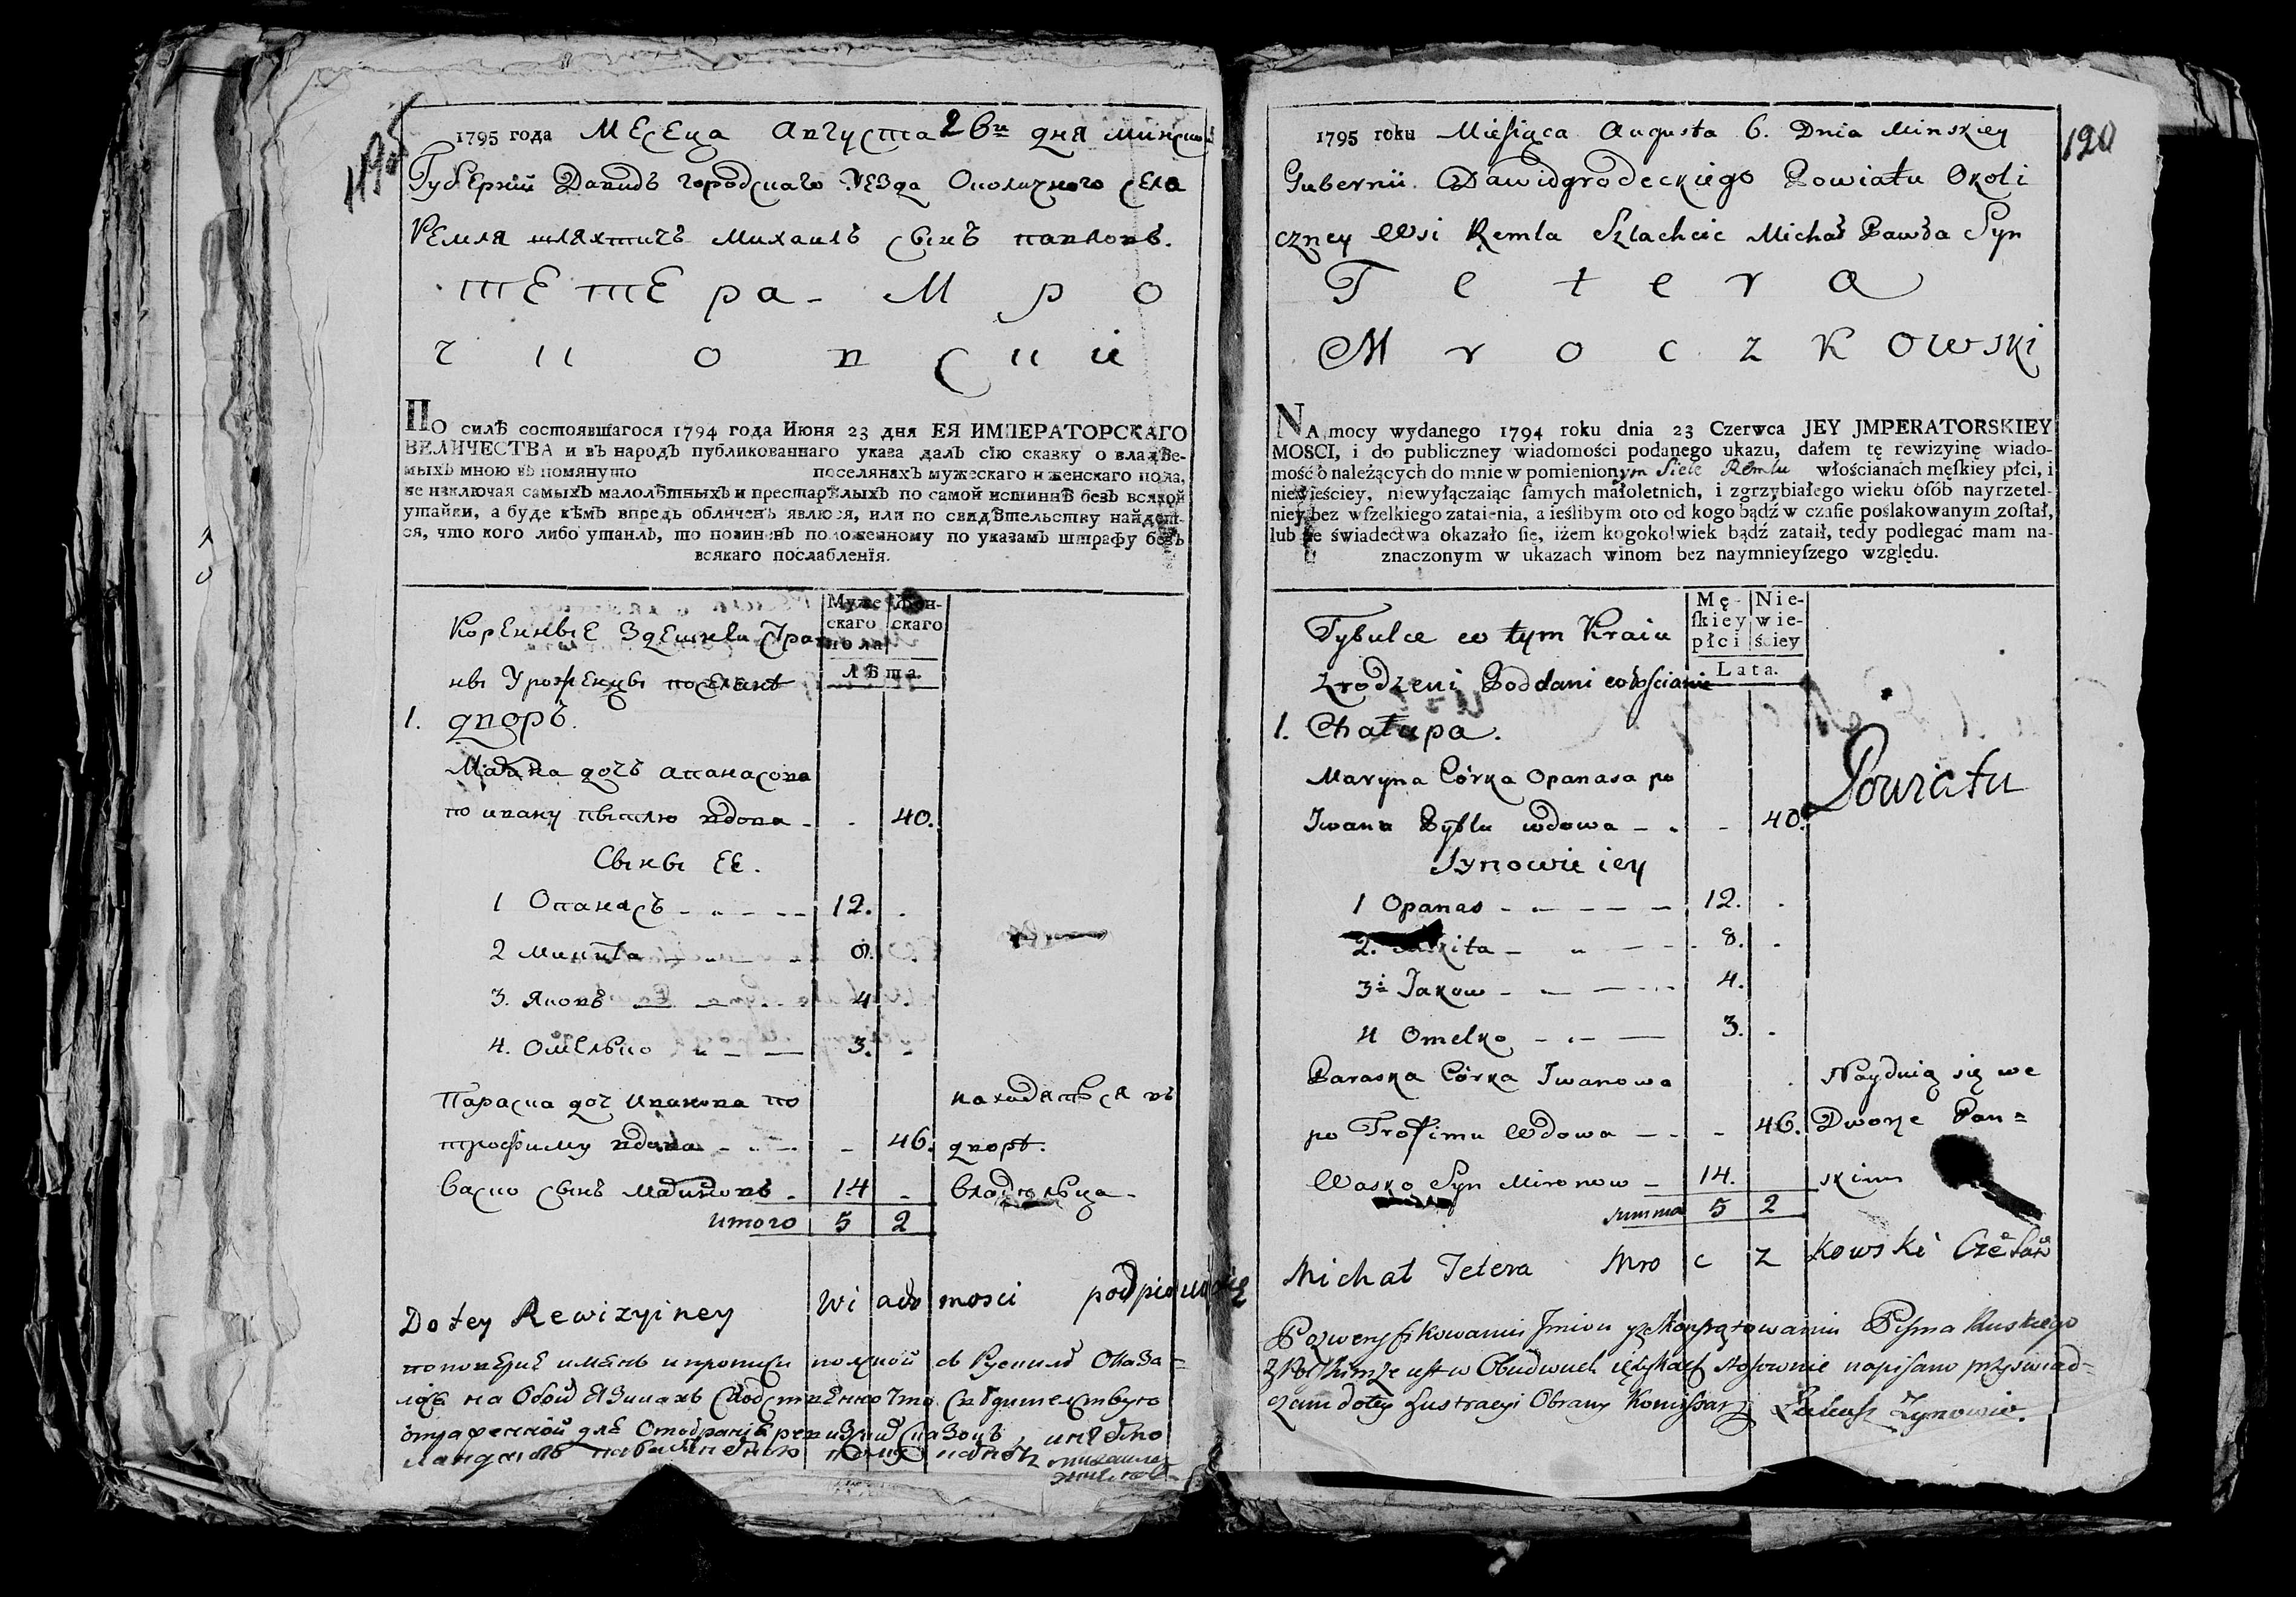 1795 года Месеца Августа 26го дня Минской
Губерніи Давидъ городскаго уезда Околичного села
Ремля шляхтичъ Михаилъ сынъ павловъ.
тетера - Мро
чковский
По силѣ состоявшагося 1794 года Июня 23 дня ЕЯ ИМПЕРАТОРСКАГО
ВЕЛИЧЕСТВА и въ народъ публикованнаго указа далъ сїю сказку о владѣе-
мыхъ мною въ помянуто поселянахъ мужескаго и женскаго пола,
не изключая самыхъ малолѣтныхъ и престарѣлыхъ по самой истиннѣ безъ всякой
утайки, а буде кѣмъ впредь обличенъ явлюся, или по свидѣтельству найдет-
ся, что кого либо утаилъ, то повиненъ положенному по указамъ штрафу безъ
всякаго послабленїя.
Муже- скаго Жен- скаго
пола
Лѣта.
Коренные здешнеи стра
ны Уроженцы поселяне
1. дворъ.
дочь апанасова
по ивану вдова - - 40.
Сыны ее.
1 Опанасъ - - - 12. .
2 Микита - - - 8. .
3. Яковъ - - - 4 .
4. Омелько - - 3. .
Параска доч иванова по находятся въ
трофиму вдова - - - 46. дворе.
Васко сынъ - 14 - владельца -
итого 5 2
Do tey Rewizyiney wiadomosci podpisuię
на Обоих Языках
1795 roku Miesiąca Augusta 6. Dnia Minskiey
Gubernii. Dawidgrodeckiego Powiatu Okoli
czney Wsi Remla Szlachcic Michał Pawła Syn
Tetera
Mroczkowski
120
NA mocy wydanego 1794 roku dnia 23 Czerwca JEY JMPERATORSKIEY
MOSCI, i do publiczney wiadomości podanego ukazu, dałem tę rewizyinę wiado-
mość o należących do mnie w pomienionym Siele Remlu włościanach męſkiey płci, i
niewieściey, niewyłączaiąc ſamych małoletnich, i zgrzybiałego wieku óſób nayrzetel-
niey bez wſzelkiego zataienia, a ieślibym oto od kogo bądź w czaſie poślakowanym został,
lub ze świadectwa okazało ſię, iżem kogokolwiek bądź zataił, tedy podlegać mam na-
znaczonym w ukazach winom bez naymnieyſzego względu.
Mę- ſkiey płci Nie- wie- ściey
Lata.
Tybulce w tym Kraiu
Zrodzeni Poddani włościanie
1. Chałupa.
Powiatu
Maryna Córka Opanasa po
Iwanu wdowa - - - 40.
Synowie iey
1 Opanas - - - 12. .
2. Mikita - - - 8. .
3. Jakow - - - 4.
4 Omelko - - - 3. .
Paraska Córka Iwanowa . Nayduią się we
po Trofimu Wdowa - - - 46. Dworze Pan=
Wasko Syn Mironow - 14. skim
summa 5 2
Michał Tetera Mroczkowski
Pisma Ruskiego
w Obudwuch ięzykach stosownie napisano przyswiad-
czam do tey Lustracyi Obrany Komisarz